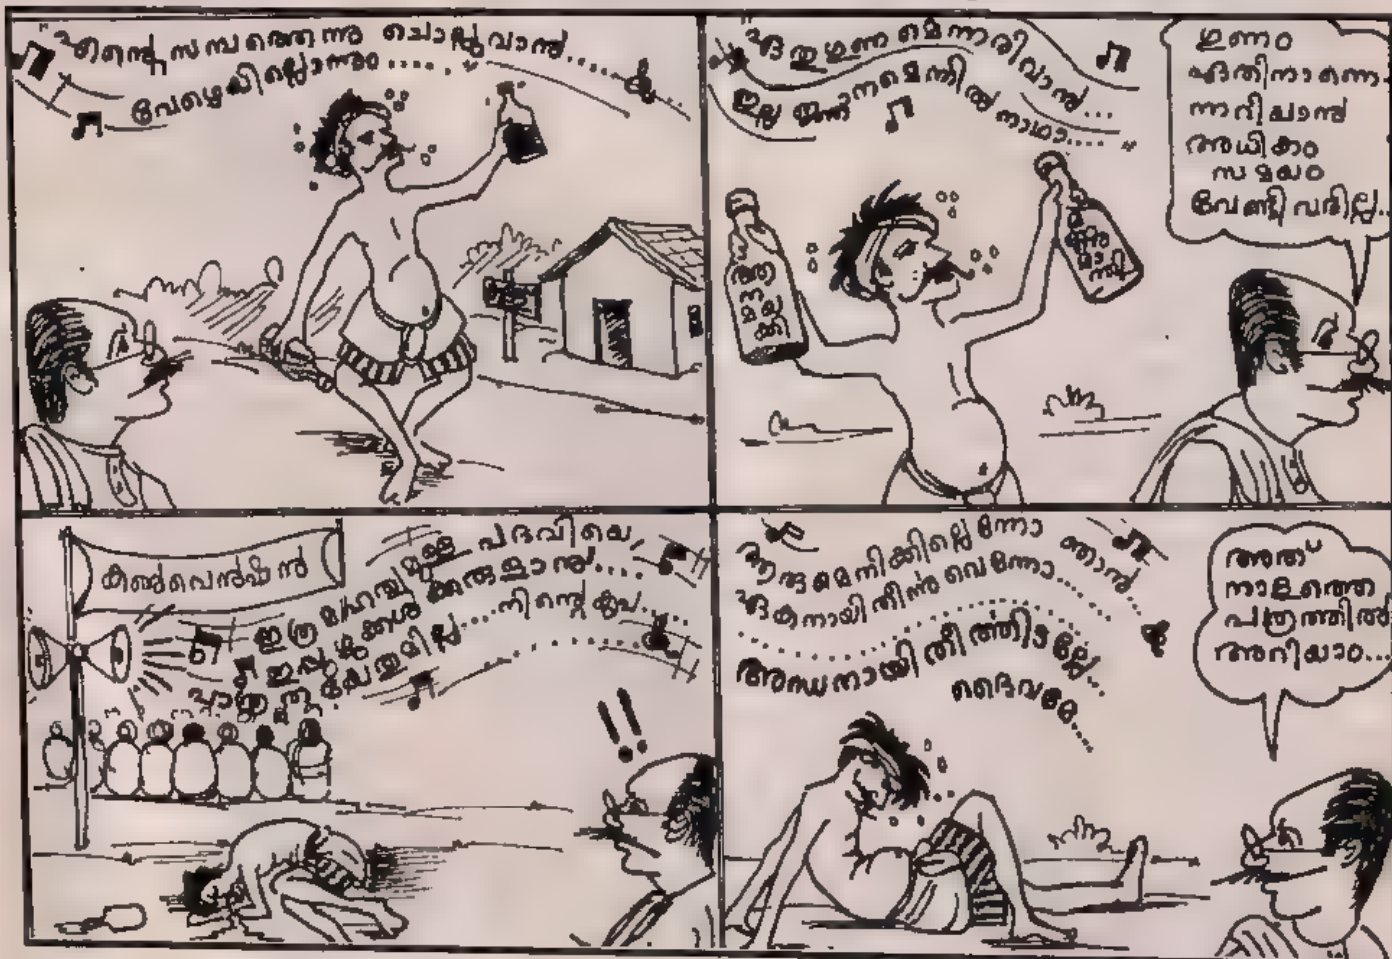 "എന്റെ സമ്പത്തെന്നു ചൊല്ലുവാൻ......
വേറെയില്ലൊന്നും ....."
"ഏതുഗുണമെന്നരിവാൻ...
ഇല്ല ജ്ഞാനമെന്നിൽ നാഥാ....."
ഗുണം
ഏതിനാണെ
ന്നറിയാൻ
അധികം
സമയം
വേണ്ടിവരില്ല..
കൺവെൻഷൻ
ഇത്ര മഹത്വമുള്ള പദവിയെ,
ഈ ഇപ്പുഴുക്കൾക്കരുളാൻ....
പാത്രത ലേതുമില്ല....നിന്റെ കൃപ..
ആരുമെനിക്കില്ലെന്നോ ഞാൻ..
ഏകനായി തീർന്നുവെന്നോ....
അന്ധനായി തീർത്തിട്ടല്ലേ..
ദൈവമേ...
അത്
നാളത്തെ
പത്രത്തിൽ
അറിയാം...